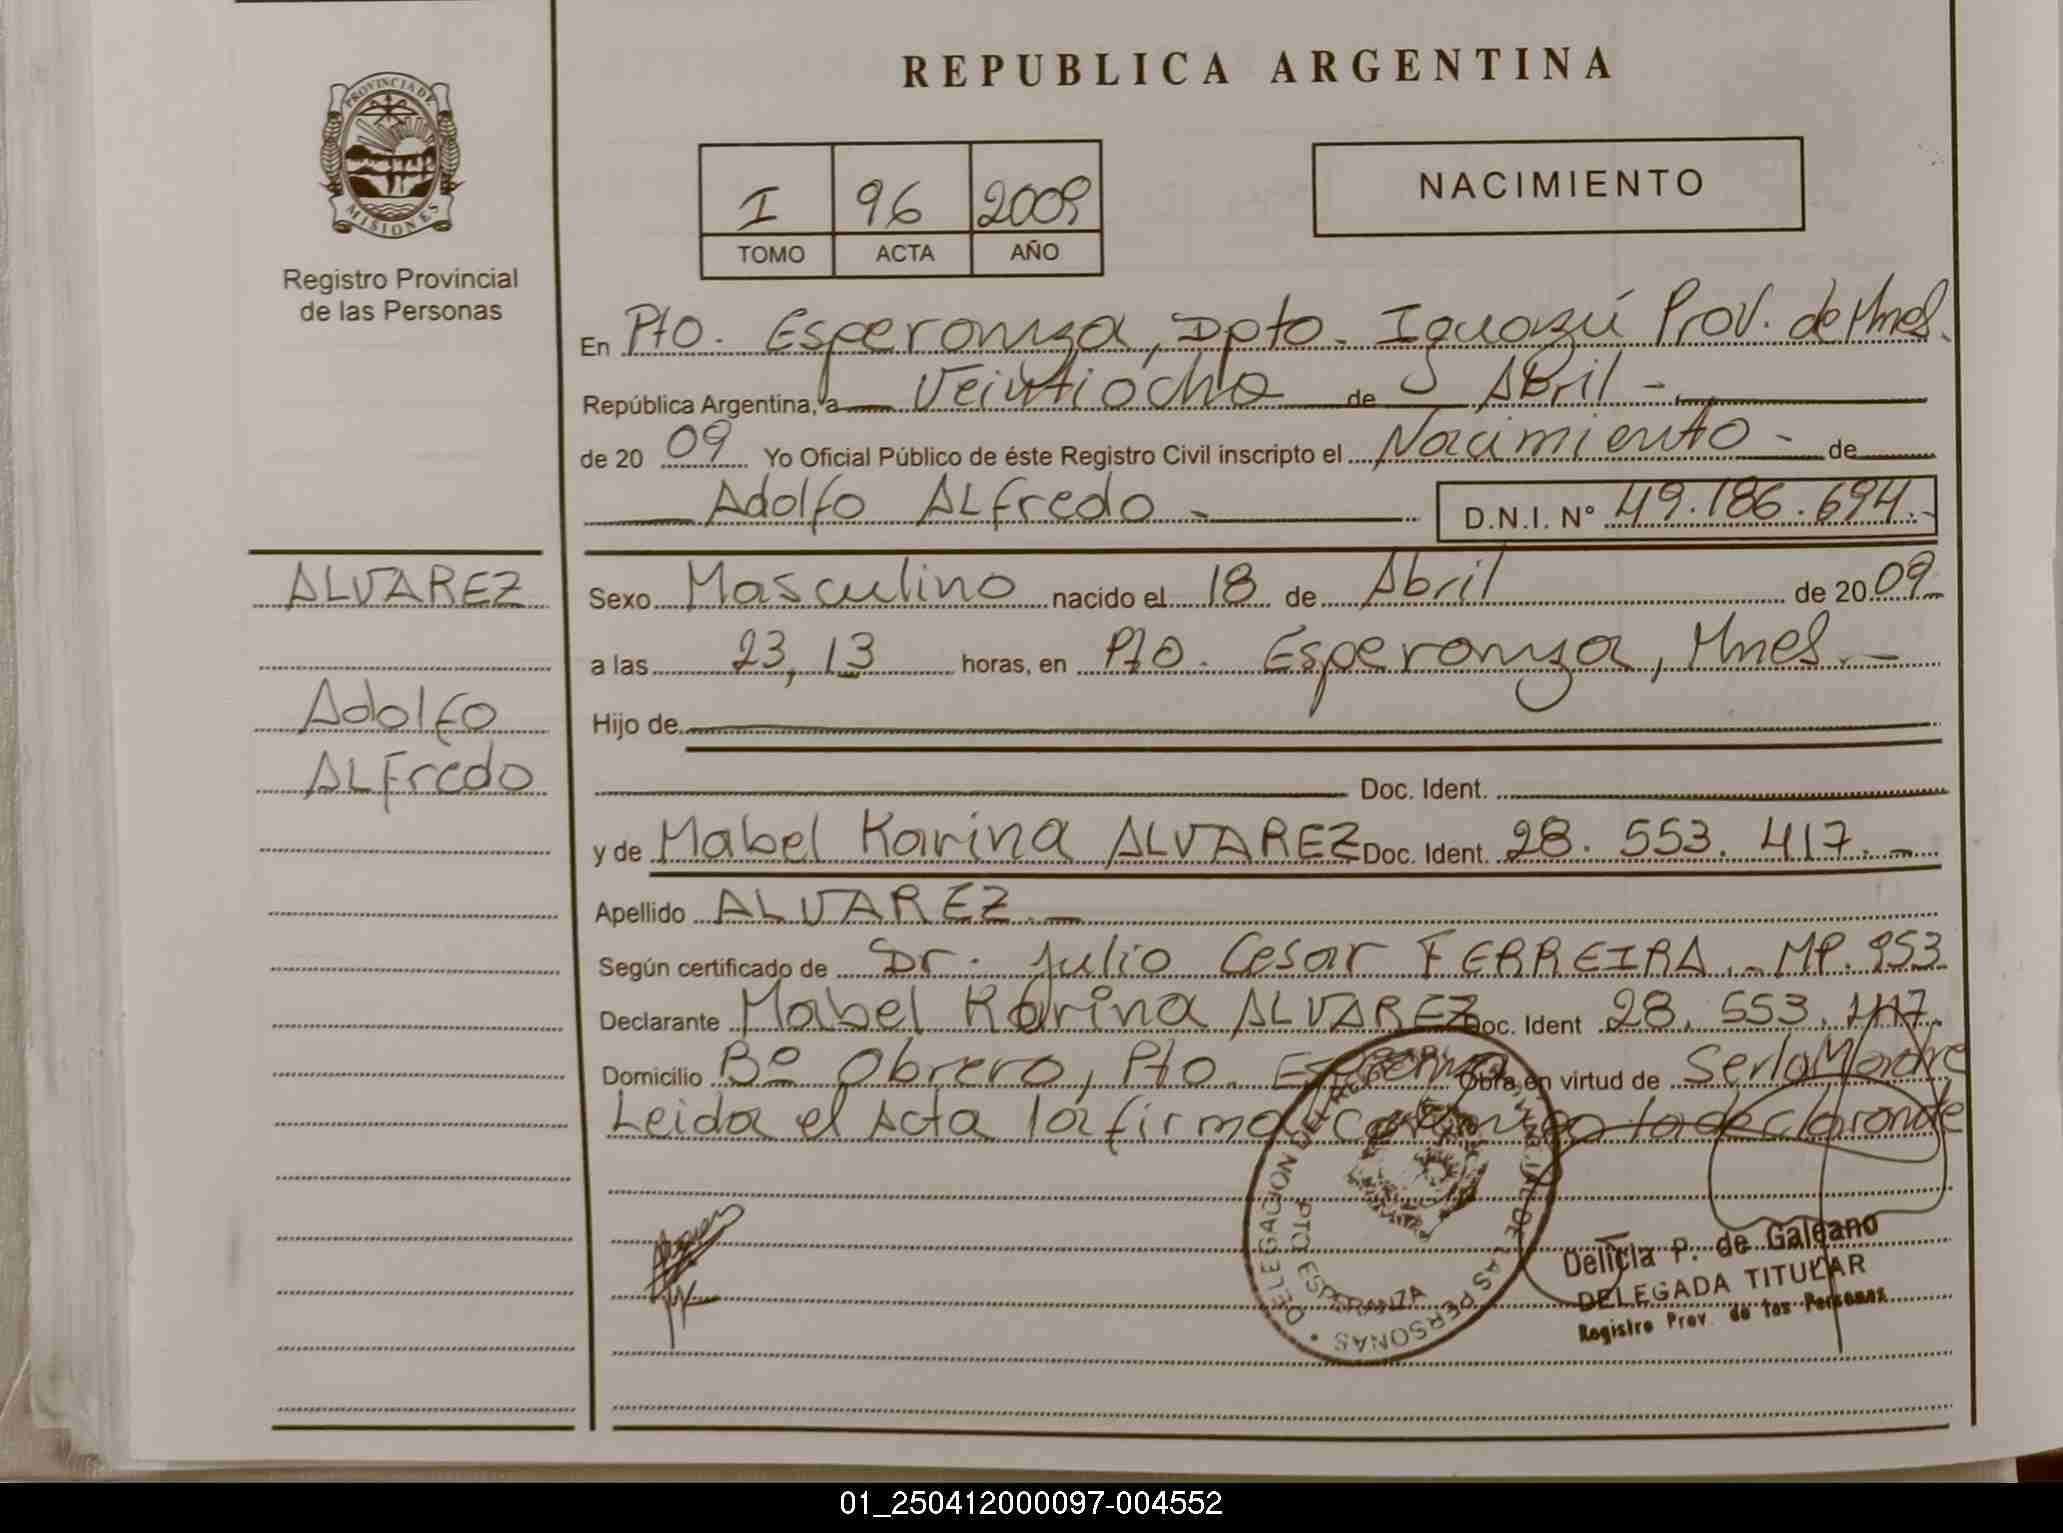 REPUBLICA ARGENTINA
PROVINCIA DE MISIONES
Registro Provincial
de las Personas
I 96 2009
TOMO ACTA AÑO
NACIMIENTO
En Pto. Esperanza, Dpto. Iguazú Prov. de Mnes.
República Argentina, a Veintiocho de Abril -
de 20 09 Yo Oficial Público de éste Registro Civil inscripto el Nacimiento - de
Adolfo ALfredo - D.N.I. N° 49.186.694.-
ALVAREZ
Adolfo
ALFredo
Sexo Masculino nacido el 18 de Abril de 20 09
a las 23,13 horas, en Pto. Esperanza, Mnes. -
Hijo de
Doc. Ident.
y de Mabel Karina ALVAREZ Doc. Ident. 28. 553. 417. -
Apellido ALVAREZ. -
Según certificado de Dr. Julio Cesar FERREIRA. - MP. 953
Declarante Mabel Karina ALVAREZ Doc. Ident 28. 553. 417.
Domicilio Bº Obrero, Pto. Esperanza Obra en virtud de Ser la Madre
Leida el Acta la firma conmigo la declarante
DELEGACION DEL REGISTRO PROVINCIAL DE LAS PERSONAS
PTO ESPERANZA
Delicia P. de Galeano
DELEGADA TITULAR
Registro Prov. de las Personas
01_250412000097-004552